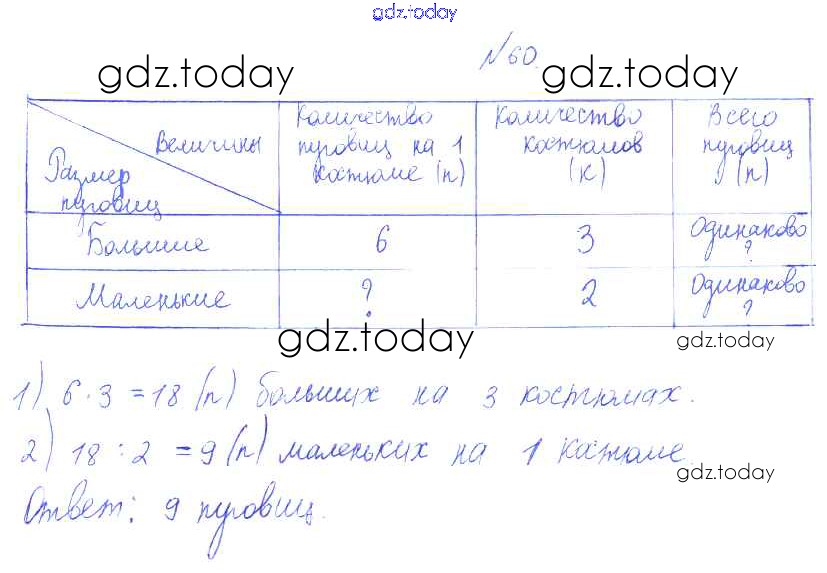 gdz.today
№60.
gdz.today gdz.today
Величины
Размер
пуговиц
Количество
пуговиц на 1
костюме (п)
Количество
костюмов
(к)
Всего
пуговиц
(п)
Большие 6 3 Одинаково
?
Маленькие ? 2 Одинаково
?
gdz.today gdz.today
1) 6·3=18 (п) больших на 3 костюмах.
2) 18:2=9 (п) маленьких на 1 костюме
gdz.today
Ответ: 9 пуговиц.